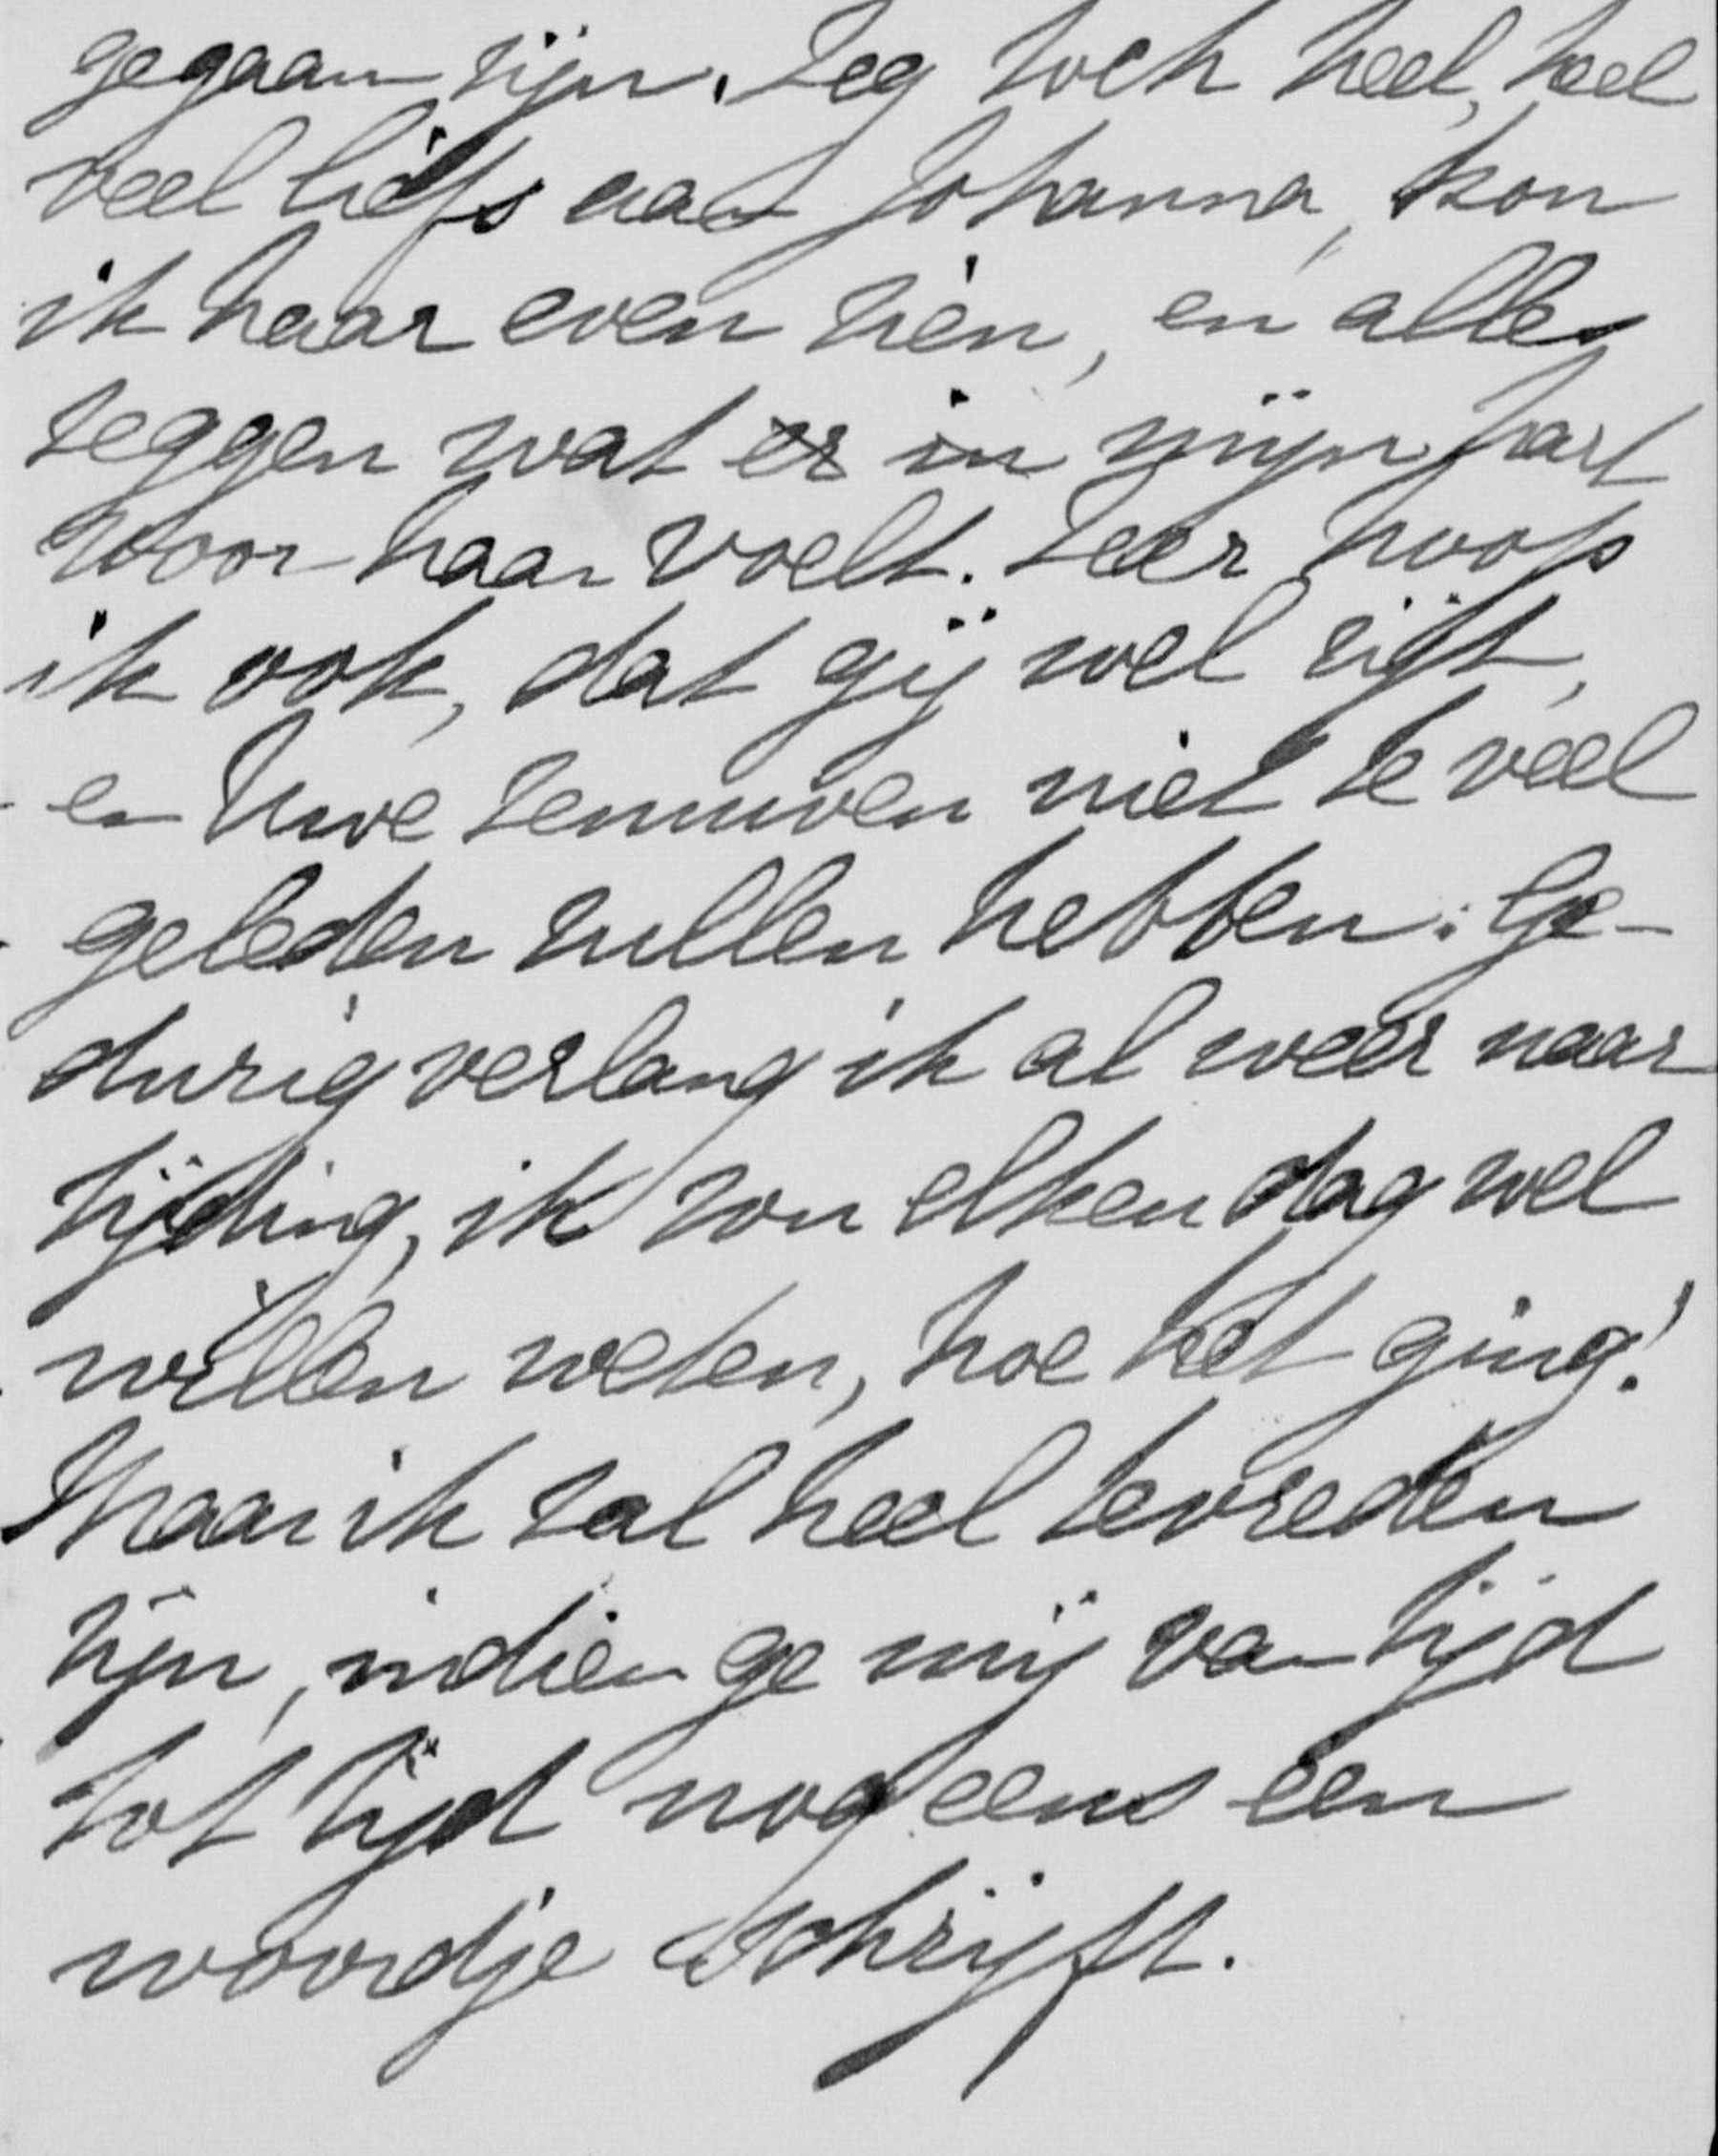 gegaan zijn. Zeg toch heel, heel
veel liefs aan Johanna, kon
ik haar even zien, en alles
zeggen wat er in mijn hart
voor haar voelt. Zeer hoop
ik ook, dat gij wel zijt,
en Uwe zenuwen niet te veel
geleden zullen hebben. Ge-
durig verlang ik al weer naar
tijding, ik zou elken dag wel
willen weten, hoe het ging!
Maar ik zal heel tevreden
zijn, indien ge mij van tijd
tot tijd nog eens een
woordje schrijft.